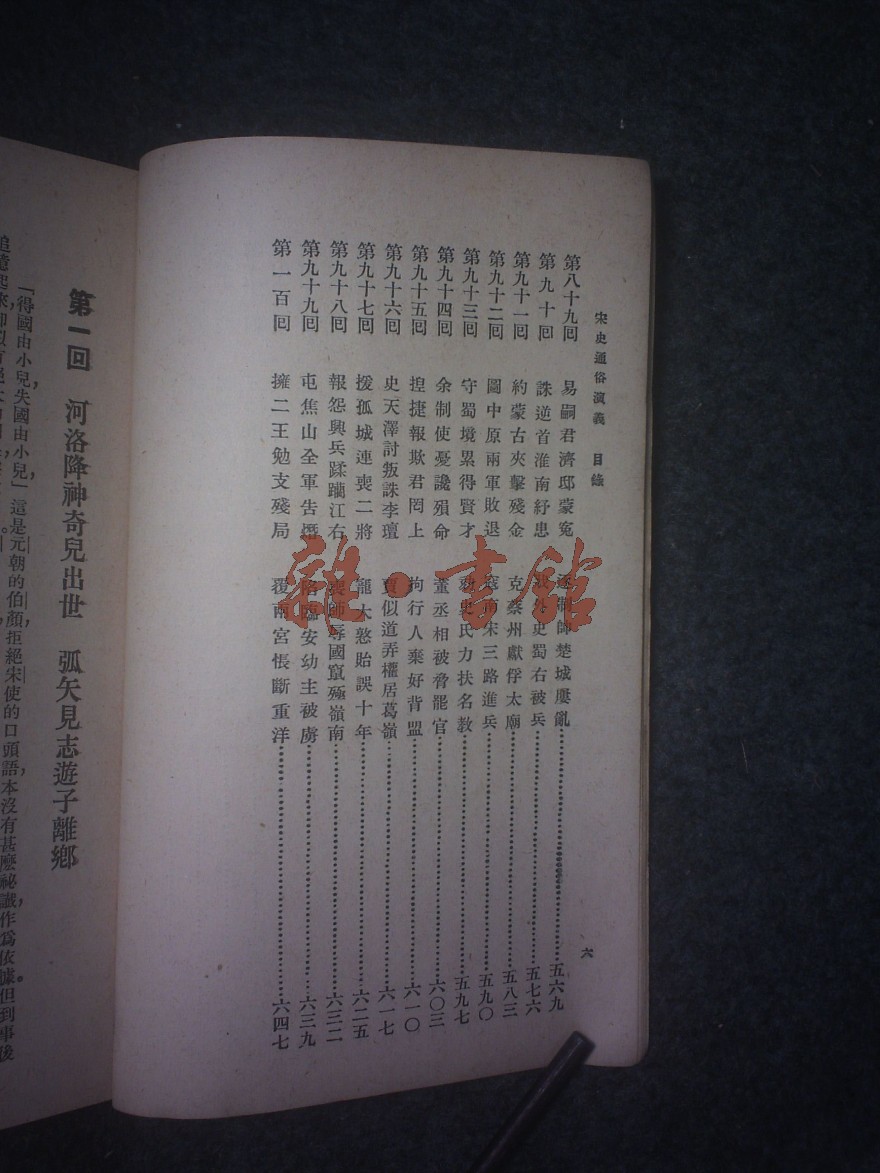 宋史通俗演義 目錄
六
第八十九回 易嗣君濟邸蒙冤 逐制帥楚城屢亂 五六九
第九十回 誅逆首淮南紓患 外史蜀右被兵 五七六
第九十一回 約蒙古夾擊殘金 克蔡州獻俘太廟 五八三
第九十二回 圖中原兩軍敗退 寇南宋三路進兵 五九〇
第九十三回 守蜀境累得賢才 劾史氏力扶名教 五九七
第九十四回 余制使憂讒殞命 董丞相被脅罷官 六〇三
第九十五回 捏捷報欺君罔上 拘行人棄好背盟 六一〇
第九十六回 史天澤討叛誅李璮 賈似道弄權居葛嶺 六一七
第九十七回 援孤城連喪二將 寵大憝貽誤十年 六二五
第九十八回 報怨興兵蹂躪江右 喪師辱國竄殛嶺南 六三二
第九十九回 屯焦山全軍告熸 臨安幼主被虜 六三九
第一百回 擁二王勉支殘局 覆兩宮悵斷重洋 六四七
第一回 河洛降神奇兒出世 弧矢見志遊子離鄉
「得國由小兒，失國由小兒」，這是元朝的伯顏拒絕宋使的口頭語，本沒有甚麽祕讖，作爲依據。但到事後
追憶起來，
雜·書館